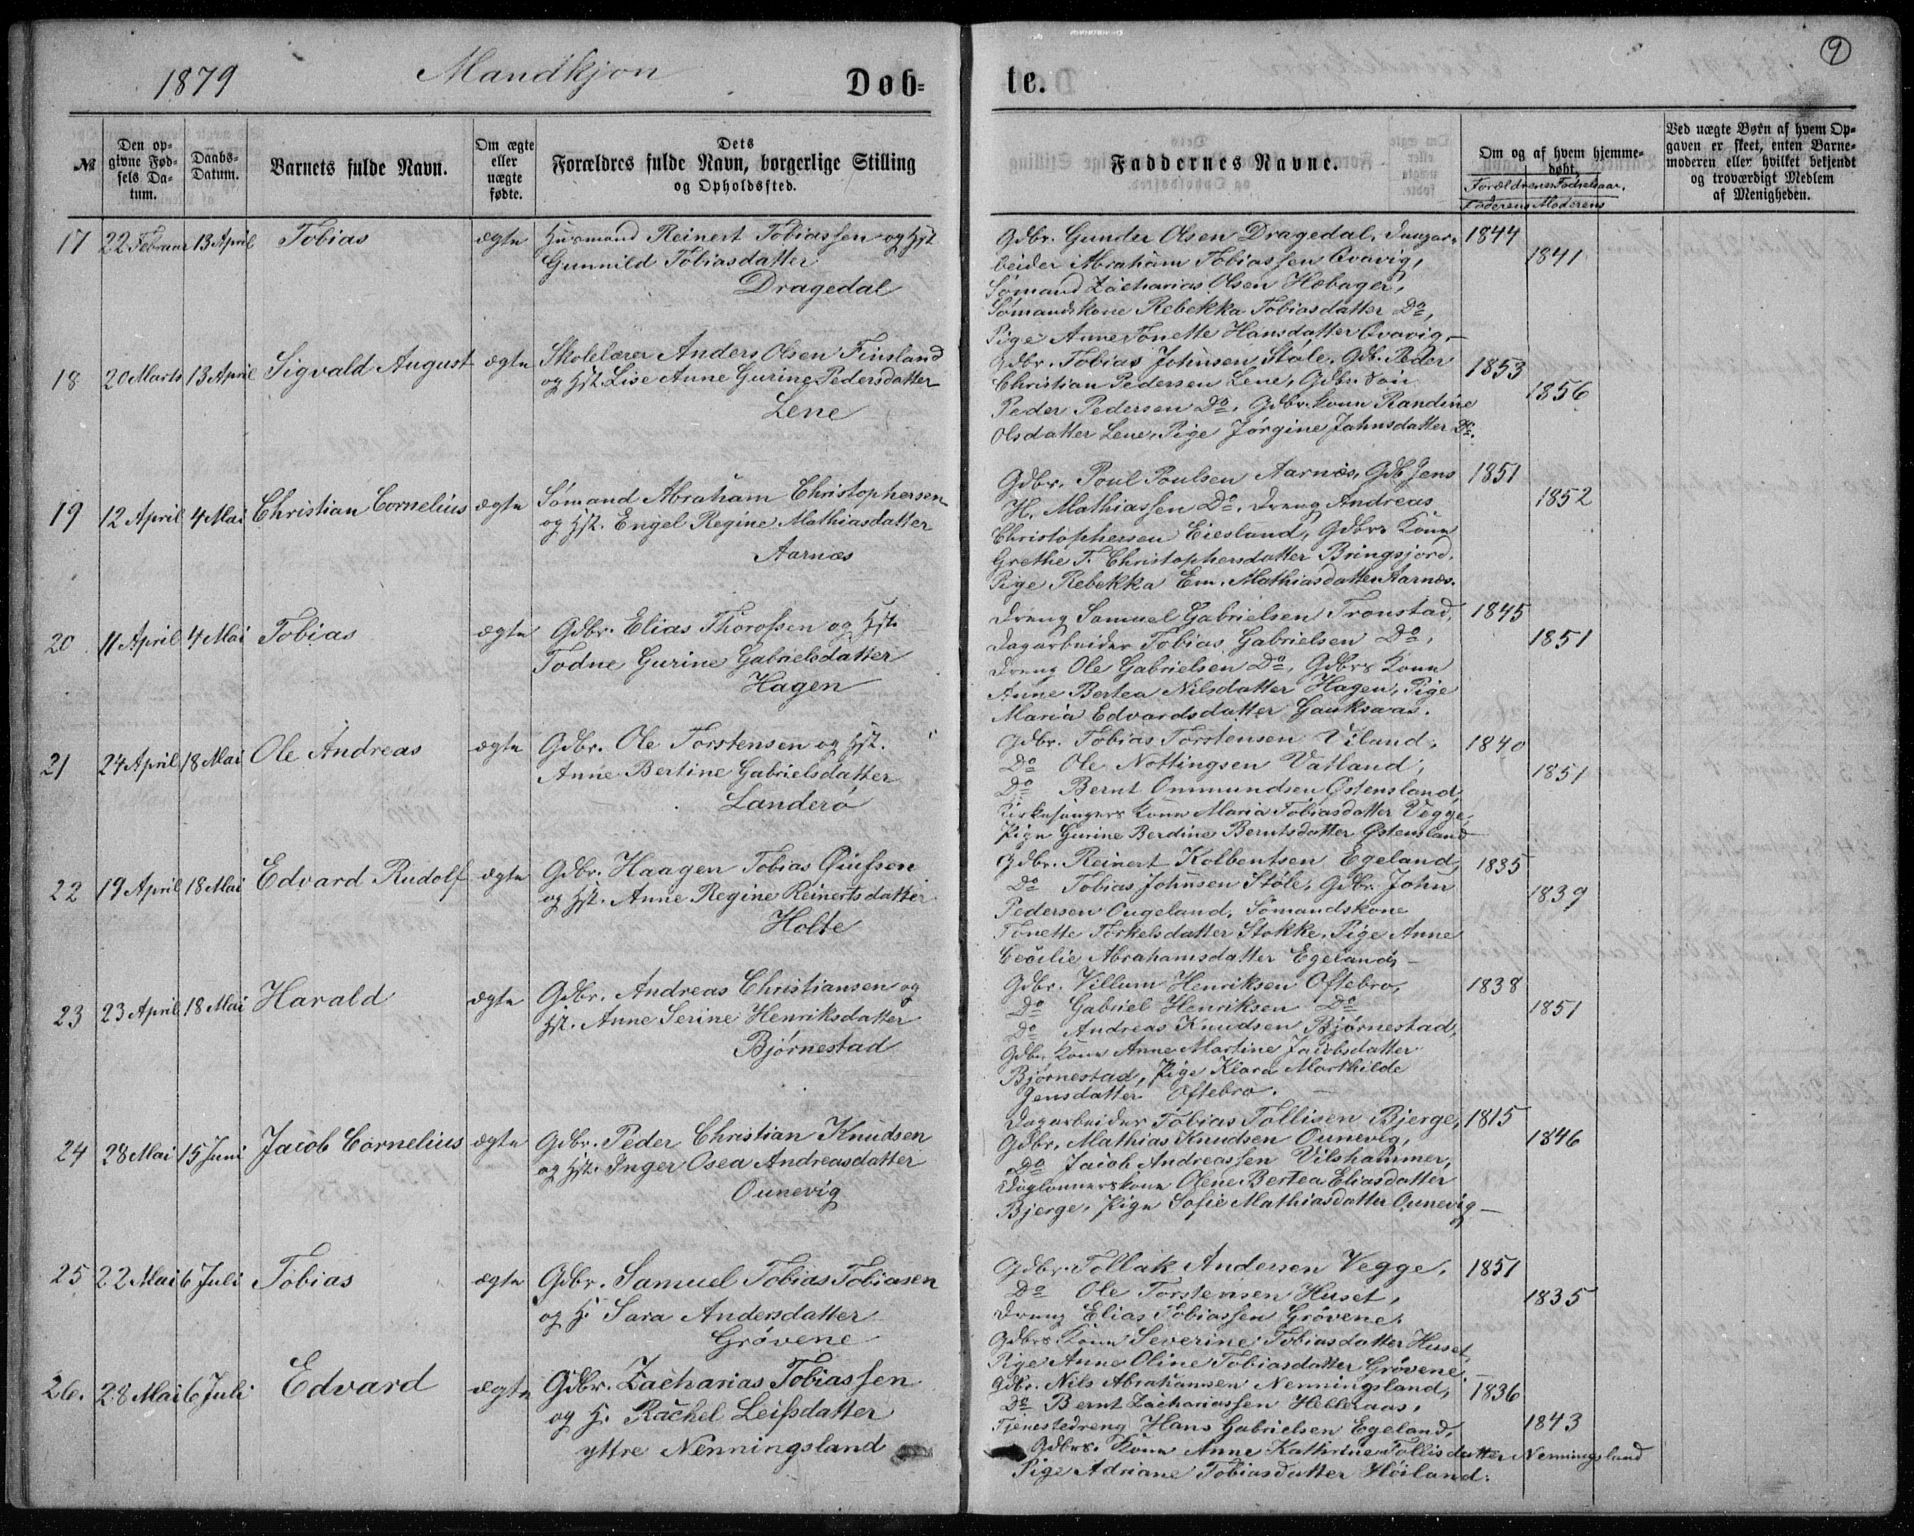 1879 Mandkjøn Døb= te. 9
№
Den op-
givne Fød-
sels Da-
tum.
Daabs-
Datum.
Barnets fulde Navn.
Om ægte
eller
uægte
fødte.
Dets
Forældres fulde Navn, borgerlige Stilling
og Opholdssted.
Faddernes Navne.
Om og af hvem hjemme-
døbt.
Forældrenes Fødselsaar.
Faderens Moderens
Ved uægte Børn af hvem Op-
gaven er skeet, enten Barne-
moderen eller hvilket bekjendt
og troværdigt Medlem
af Menigheden.
17 22 Februar 13 April Tobias ægte
Husmand Reinert Tobiassen og Hst
Gunnild Tobiasdatter
Dragedal
Gdbr. Gunder Olsen Dragedal, Dagar-
beider Abraham Tobiassen Qvavig,
Sømand Zacharias Olsen Hæbager,
Sømandskone Rebekka Tobiasdatter Do,
Pige Anne Tonette Hansdatter Qvavig.
1844
1841
18 20 Marts 13 April Sigvald August ægte
Skolelærer Anders Olsen Finsland
og Hst. Lise Anne Gurine Pedersdatter
Lene
Gdbr. Tobias Johnsen Støle, Gdb. Peder
Christian Pedersen Lene, Gdbr. Søn
Peder Pedersen Do, Gdbr. Kone Randine
Olsdatter Lene, Pige Jørgine Jahnsdatter Do.
1853
1856
19 12 April 4 Mai Christian Cornelius ægte
Sømand Abraham Christophersen
og Hst. Engel Regine Mathiasdatter
Aarnæs
Gdbr. Poul Poulsen Aarnæs, Gdb. Jens
H. Mathiassen Do, Dreng Andreas
Christophersen Eiesland, Gdbrs Kone
Grethe T. Christophersdatter Bringsjord.
Pige Rebekka Em. Mathiasdatter Aarnæs.
1851
1852
20 11 April 4 Mai Tobias ægte
Gdbr. Elias Thorossen og Hst.
Todne Gurine Gabrielsdatter
Hagen
Dreng Samuel Gabrielsen Tronstad,
Dagarbeider Tobias Gabrielsen Do,
Dreng Ole Gabrielsen Do, Gdbrs Kone
Anne Bertea Nilsdatter Hagen, Pige
Maria Edvardsdatter Gauksaas.
1845
1851
21 24 April 18 Mai Ole Andreas ægte
Gdbr. Ole Torstensen og Hst.
Anne Bertine Gabrielsdatter
Landerø
Gdbr. Tobias Torstensen Viland,
Do Ole Nottingsen Vatland,
Do Bernt Ommundsen Østensland,
Kirkesangers Kone Maria Tobiasdatter Vegge,
Pige Gurine Berdine Berntsdatter Østensland
1840
1851
22 19 April 18 Mai Edvard Rudolf ægte
Gdbr. Haagen Tobias Øiufsen
og Hst. Anne Regine Reinertsdatter
Holte
Gdbr. Reinert Kolbentsen Egeland,
Do Tobias Johnsen Støle, Gdbr. John
Pedersen Ougeland, Sømandskone
Tonette Torkelsdatter Stokke, Pige Anne
Cecilie Abrahamsdatter Egeland,
1835
1839
23 23 April 18 Mai Harald ægte
Gdbr. Andreas Christiansen og
Hst. Anne Serine Henriksdatter
Bjørnestad
Gdbr. Villum Henriksen Oftebro,
Do Gabriel Henriksen Do
Do Andreas Knudsen Bjørnestad,
Gdbr. Kone Anne Martine Jacobsdatter
Bjørnestad, Pige Klara Marthilde
Jensdatter Oftebro.
1838
1851
24 28 Mai 15 Juni Jacob Cornelius ægte
Gdbr. Peder Christian Knudsen
og Hst. Inger Osea Andreasdatter
Ounevig
Dagarbeider Tobias Tollisen Bjerge,
Gdbr. Mathias Knudsen Ounevig,
Do Jacob Andreassen Vilshammer,
Daglønnerskone Olene Bertea Eliasdatter
Bjerge, Pige Sofie Mathiasdatter Ounevig
1815
1846
25 22 Mai 6 Juli Tobias ægte
Gdbr. Samuel Tobias Tobiasen
og H. Sara Andersdatter
Grövene
Gdbr. Tollak Andersen Vegge,
Do Ole Torstensen Huset,
Dreng Elias Tobiassen Grövene,
Gdbrs. Kone Severine Tobiasdatter Huset,
Pige Anne Oline Tobiasdatter Grövene.
1851
1835
26. 28 Mai 6 Juli Edvard ægte
Gdbr. Zacharias Tobiassen
og H. Rachel Leifsdatter
yttre Nenningsland
Gdbr. Nils Abrahamsen Nenningsland,
Do Bernt Zachariassen Helleraas,
Tjenestedreng Hans Gabrielsen Egeland,
Gdbrs. Kone Anne Kathrine Tollisdatter Nenningsland
Pige Adriane Tobiasdatter Høiland.
1836
1843